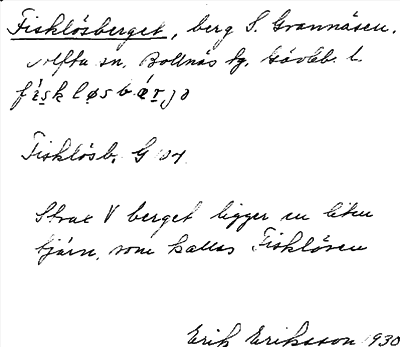 Fisklösberget, berg S. Grannäsen.
Alfta sn. Bollnäs tg. Gävleb. l.
Fisklösb. G 104
Strax V berget ligger en liten
tjärn, som kallas Fisklösen
Erik Eriksson 1930